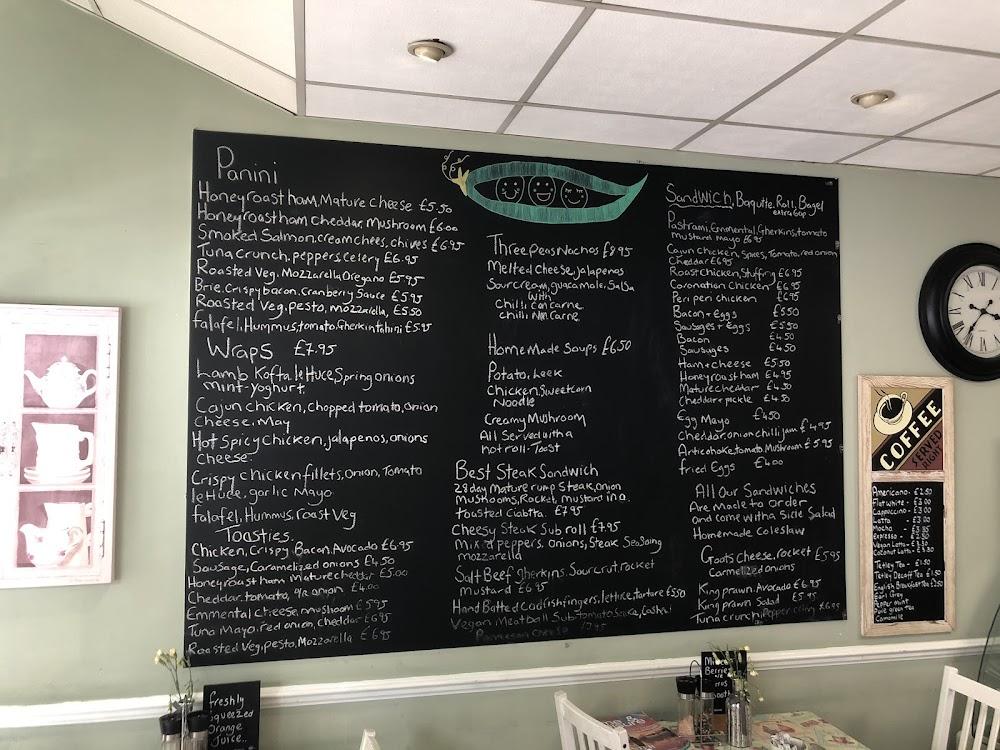 Panini
Honey roast ham, Mature cheese £5.50
Honey roast ham cheddar, Mushroom £6.00
Smoked Salmon, cream chees, chives £6.95
Tuna crunch, peppers celery £6.95
Roasted Veg, Mozzarella, Oregano £5.95
Brie, Crispy bacon, Cranberry Sauce £5.95
Roasted Veg, pesto, mozzarella, £5.50
falafel, Hummus, tomato, Gherkin tahini £5.95
Wraps £7.95
Lamb Kofta lettuce, Spring onions
mint-yoghurt,
Cajun chicken, chopped tomato, onion
cheese, May
Hot Spicy chicken, jalapenos, onions
cheese
Crispy chicken fillets, onion, Tomato
lettuce, garlic Mayo
falafel, Hummus, roast veg
Toasties.
Chicken, Crispy Bacon, Avocado £6.95
Sausage, Caramelized onions £4.50
Honey roast ham Mature cheddar £5.00
Cheddar, tomato, onion, £4.00
Emmental cheese, mushroom £5.95
Tuna Mayo, red onion, cheddar £6.95
Roasted Veg, pesto, Mozzarella £6.95
Three peas Nachos £8.95
Melted cheese, jalapenos
Sour cream, guacamole, Salsa
with
chilli Con carne
chilli Non carne
Home Made Soups £6.50
Potato, Leek
Chicken, Sweetcorn
Noodle
Creamy Mushroom
All Served with a
hot roll-Toast
Best Steak Sandwich
28 day Mature rump Steak, onion
Mushrooms, Rocket, mustard in a
toasted Ciabtta. £7.95
Cheesy Steak Sub roll £7.95
Mix'd peppers, onions, Steak Seasoing
mozzarella
Salt Beef gherkins, Sourcrut, rocket
Mustard £6.95
Hand Batted Codfishfingers, lettice, tartare £5.50
Vegan Meatball Sub, tomato Sauce,
Parmesan cheese £7.95
Sandwich, Bagutte, Roll, Bagel
extra 60p
Pastrami, Emmental, Gherkins, tomato
mustard mayo £6.95
Cajun chicken, Spices, Tomato, red onion
Cheddar £6.95
Roast chicken, Stuffing £6.95
Coronation Chicken £6.95
Peri peri chicken £6.95
Bacon + Eggs £5.50
Sausages + Eggs £5.50
Bacon £4.50
Sausages £4.50
Ham + cheese £5.50
Honey roast ham £4.95
Mature cheddar £4.50
Cheddar + pickle £4.50
Egg Mayo £4.50
Cheddar, onion chilli jam £4.95
Artichoke, tomato, Mushroom £5.95
fried Eggs £4.00
All Our Sandwiches
Are Made to Order
and come with a Side Salad
Homemade Coleslaw
Goats cheese, rocket £5.95
Carmelized onions
King prawn, Avocado £6.95
King prawn Salad £5.95
Tuna crunch, Pepper, celery £6.95
COFFEE
SERVED
RIGHT
Americano - £2.50
Flat white - £3.00
Cappuccino - £3.00
Latta - £3.00
Mocha - £3.35
Expresso - £2.50
Vegan Latta - £3.30
Coconut Latta - £3.30
Tetley Tea - £1.50
Tetley Decaff Tea £1.50
English Breakfast Tea £2.50
Earl Grey
Pepper mint
Pure green tea
Camomile
freshly
Squeezed
Orange
Juice..
Berrie